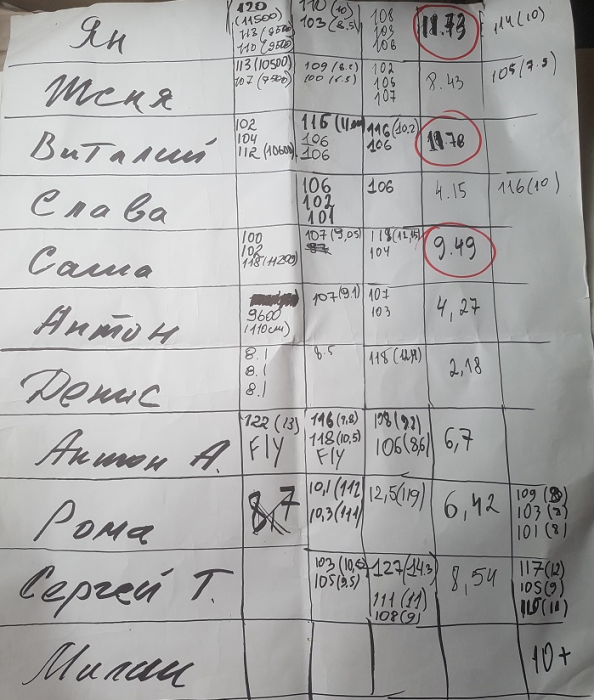 Ян
120
(11500)
113 (9500)
110 (9500)
110 (10)
103 (8.5)
108
103
106
11.73
114 (10)
Женя
113 (10500)
107 (9500)
109 (8.5)
102
105
107
8.43
105 (7.5)
Виталий
102
104
112 (10600)
116
106
106
116 (10,2)
106
11.78
Слава
106
102
101
106
4.15
116 (10)
Саша
100
102
107 (9,05)
104
9.49
Антон
9600
(110см)
107 (9.1)
107
103
4,27
Денис
8.1
8.1
8.1
8.5
2,18
Антон А.
122 (13)
FlY
118 (10,5)
FlY
106 (8,6)
6,7
Рома
8,7
10,1 (112
10,3 (111)
12,5 (119)
6,42
109 (8)
103 (7)
101 (8)
Сергей Т.
105 (9.5)
127 (14.3
111 (11)
108 (9)
8,54
117 (12)
105 (9)
Милан
10+